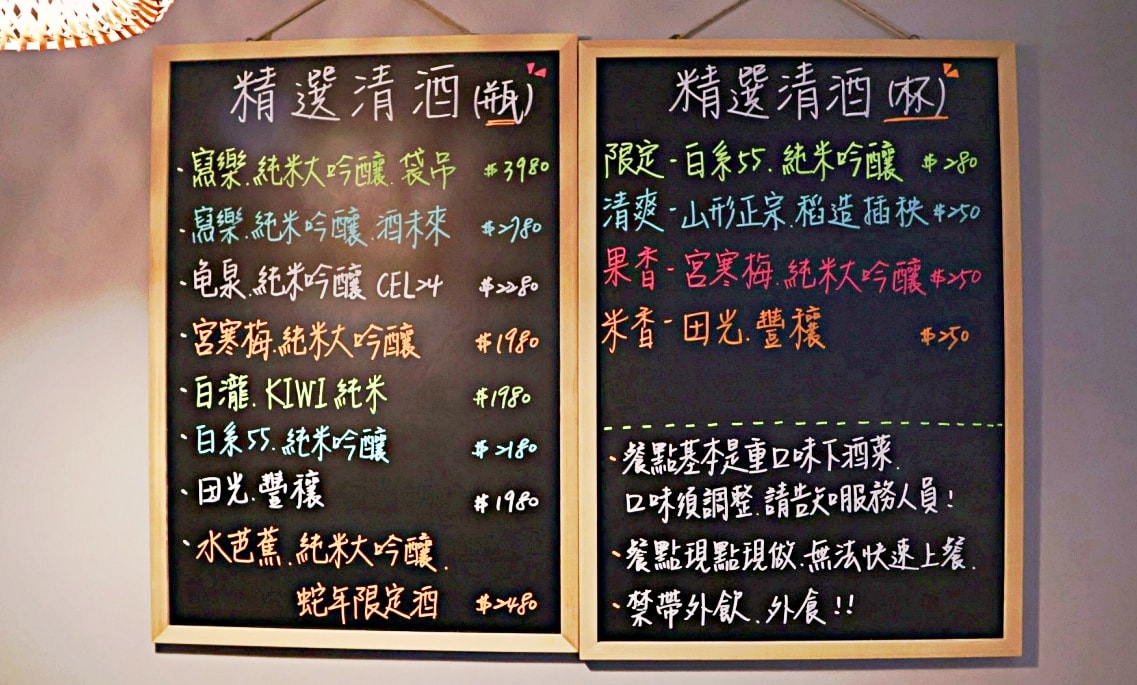 精選清酒(瓶)
·寫樂.純米大吟釀.袋吊 $3980
·寫樂.純米吟釀.酒未來 $2980
·龟泉.純米吟釀 CEL24 $2280
·宮寒梅.純米大吟釀 $1980
·白瀧.KIWI純米 $1980
·白系55.純米吟釀 $2180
·田光.豐穰 $1980
·水芭蕉.純米大吟釀.
蛇年限定酒 $2480
精選清酒(杯)
限定-白系55.純米吟釀 $280
清爽-山形正宗.稻造插秧 $250
果香-宮寒梅.純米大吟釀 $250
米香-田光.豐穰 $250
·餐點基本是重口味下酒菜.
口味須調整.請告知服務人員!
·餐點現點現做.無法快速上餐.
·禁帶外飲.外食!!